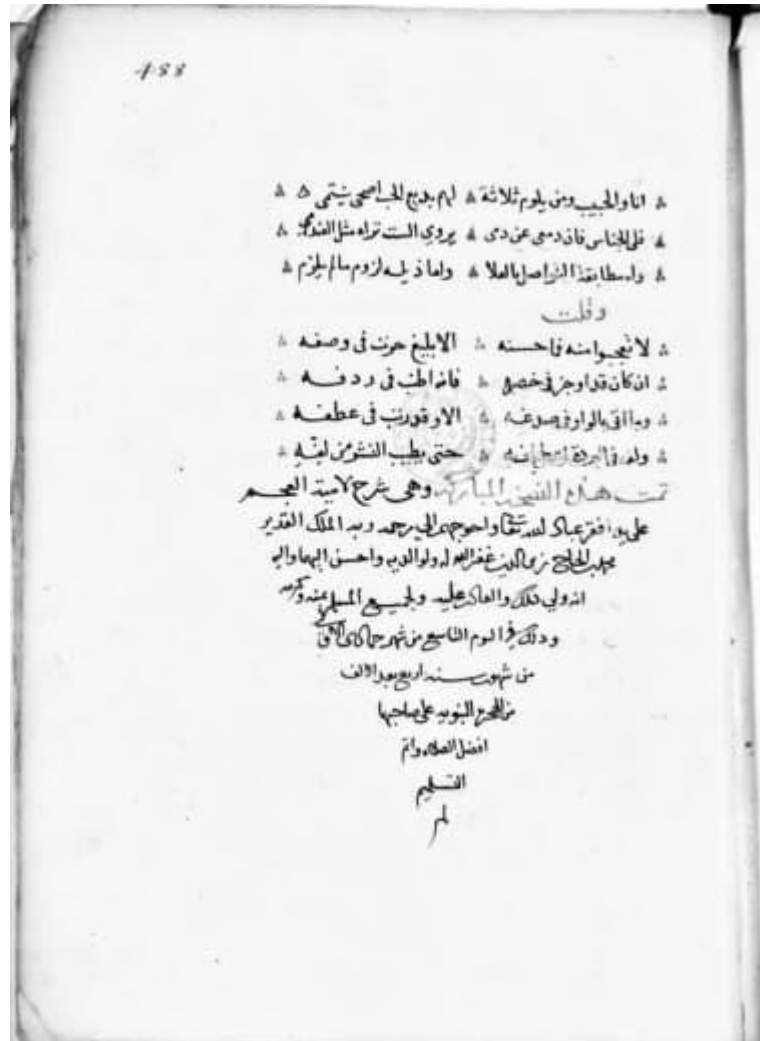 488
انا والحبيب ومن يلوم ثلاثة لهم بديع الحب اصحى ينتمى
فلى الجناس فان دمعى عن دمى يروى الست تراه مثل العندم
وله مطابقة التواصل بالعلا ولعاذلى لزوم مالم يلزم
وقلت
لا تعجبوا منه فما حسنه الا بليغ حرت فى وصفه
ان كان قد اوجز فى خصره فانه اطنب فى ردفه
وما اتى بالواو فى صدغه الا وقد رتب فى عطفه
وله فى البردة حتى يطيب النشر من لفه
تمت هذه النسخة المباركة وهى شرح لامية العجم
على يد افقر عباد الله تعالى واحوجهم الى رحمة ربه الملك القدير
الحاج زين الدين غفر الله له ولوالديه واحسن اليهما واليه
انه ولي ذلك والقادر عليه ولجميع المسلمين بمنه وكرمه
وذلك في اليوم التاسع من شهر جمادى
من شهور سنة اربع بعد الالف
من الهجرة النبوية على صاحبها
افضل الصلاة واتم
التسليم